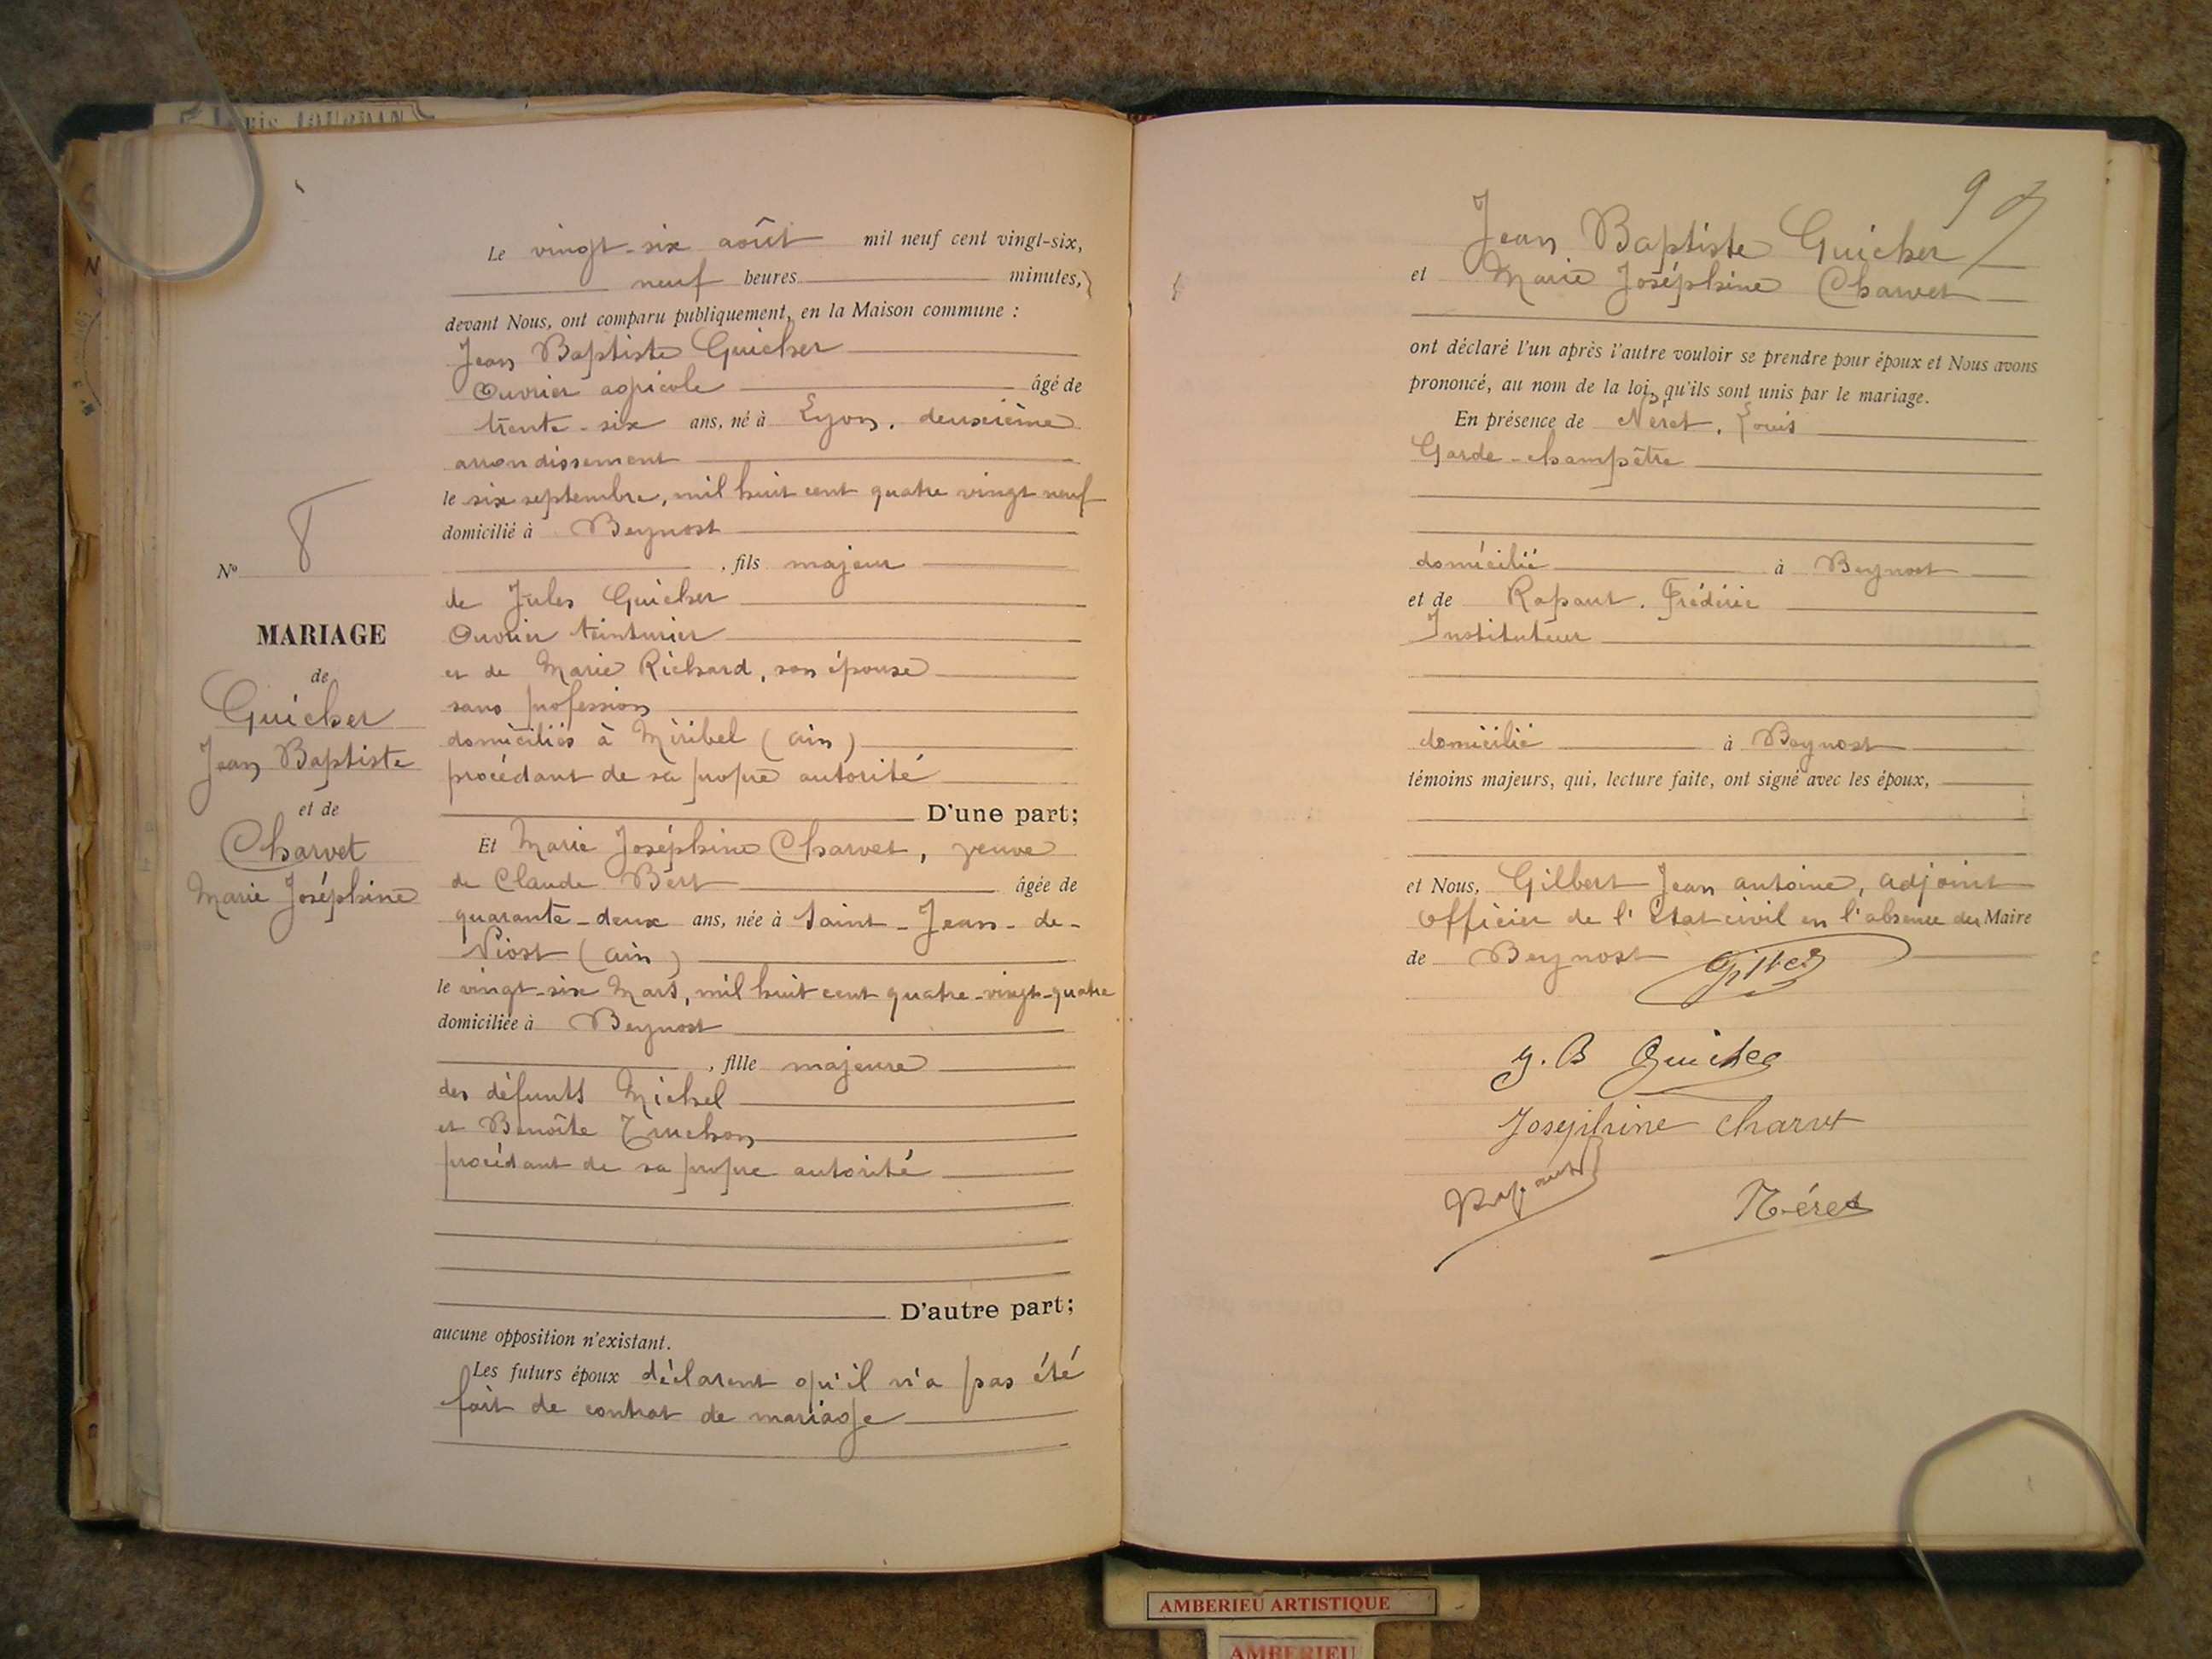 Louis JOURDAN
Le vingt-six août mil neuf cent vingt-six,
neuf heures minutes,
devant Nous, ont comparu publiquement, en la Maison commune :
Jean Baptiste Guicher
Ouvrier agricole âgé de
trente-six ans, né à Lyon, deuxième
arrondissement
le six septembre, mil huit cent quatre vingt neuf
domicilié à Beynost
, fils majeur
de Jules Guicher
Ouvrier teinturier
et de Marie Richard, son épouse
sans profession
domiciliés à Miribel (Ain)
procédant de sa propre autorité
D'une part;
Et Marie Joséphine Charvet, veuve
de Claude Bert âgée de
quarante-deux ans, née à Saint-Jean-de-
Niost (Ain)
le vingt-six Mars, mil huit cent quatre-vingt-quatre
domiciliée à Beynost
, fille majeure
des défunts Michel
et Benoîte Truchon
procédant de sa propre autorité
D'autre part;
aucune opposition n'existant.
Les futurs époux déclarent qu'il n'a pas été
fait de contrat de mariage
No 8
MARIAGE
de
Guicher
Jean Baptiste
et de
Charvet
Marie Joséphine
9
Jean Baptiste Guicher
et Marie Joséphine Charvet
ont déclaré l'un après l'autre vouloir se prendre pour époux et Nous avons
prononcé, au nom de la loi, qu'ils sont unis par le mariage.
En présence de Néret, Louis
Garde-champêtre
domicilié à Beynost
et de Rapaut, Frédéric
Instituteur
domicilié à Beynost
témoins majeurs, qui, lecture faite, ont signé avec les époux,
et Nous, Gilbert Jean Antoine, adjoint
Officier de l'Etat civil en l'absence du Maire
de Beynost Gilbert
J. B Guicher
Josephine Charvet
Rapaut
Néret
AMBERIEU ARTISTIQUE
AMBERIEU